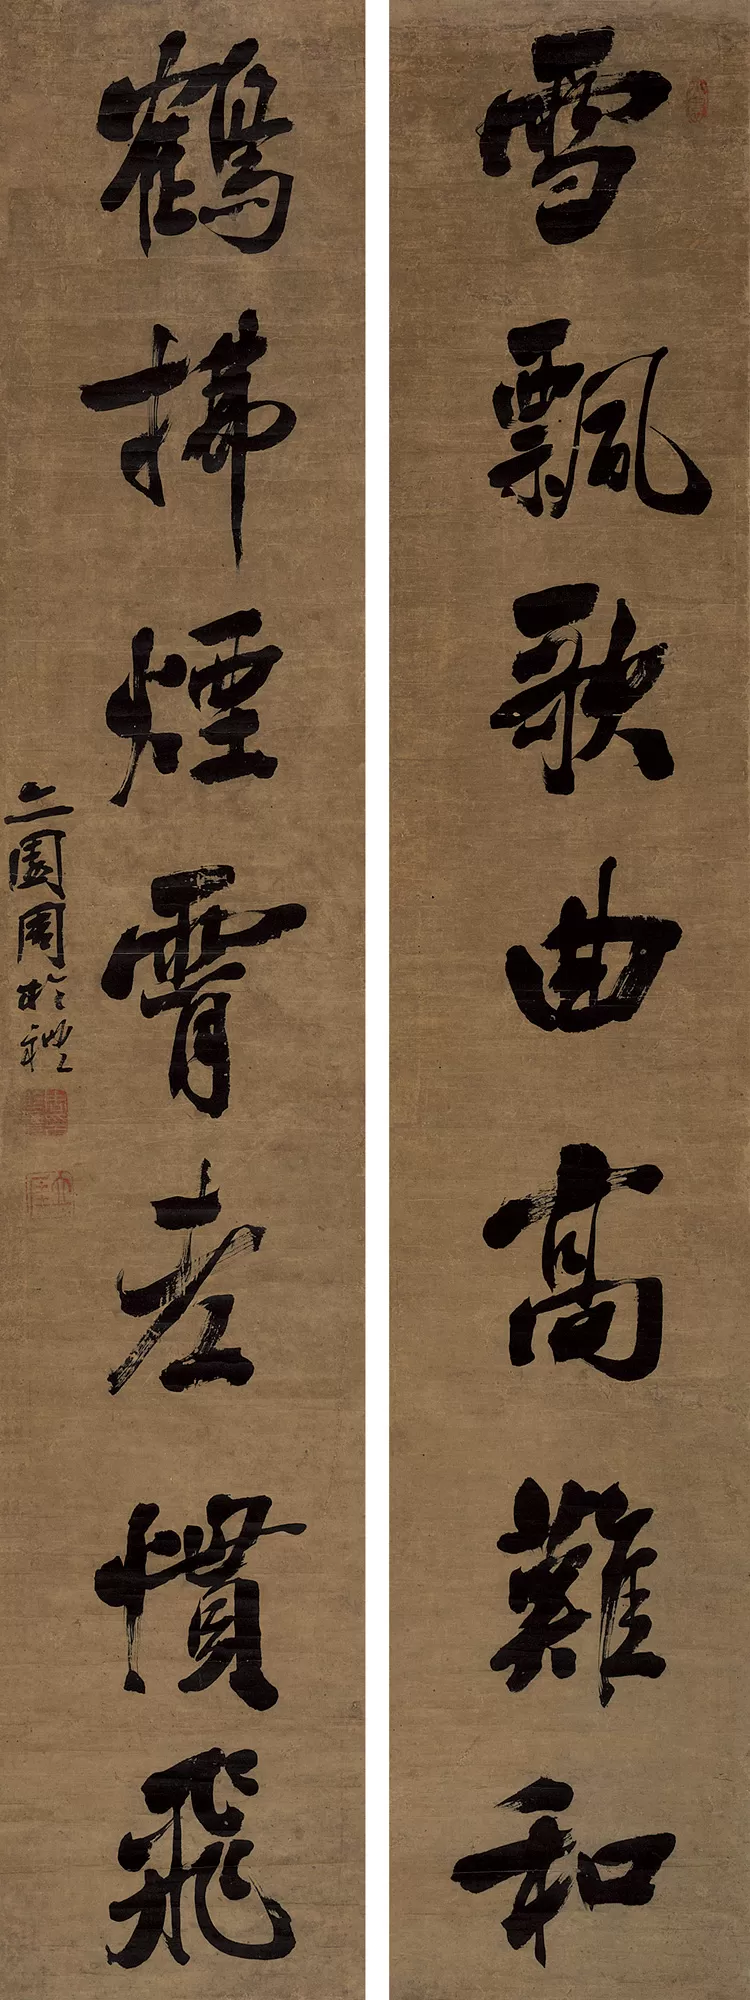 雪飄歌曲高難和
鶴拂煙霄老慣飛
亦園周於禮